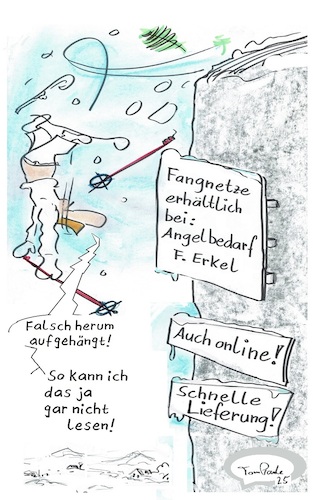 Fangnetze
erhältlich
bei:
Angelbedarf
F. Erkel
Auch online!
Schnelle
Lieferung!
Falsch herum
aufgehängt!
So kann ich
das ja
gar nicht
lesen!
25